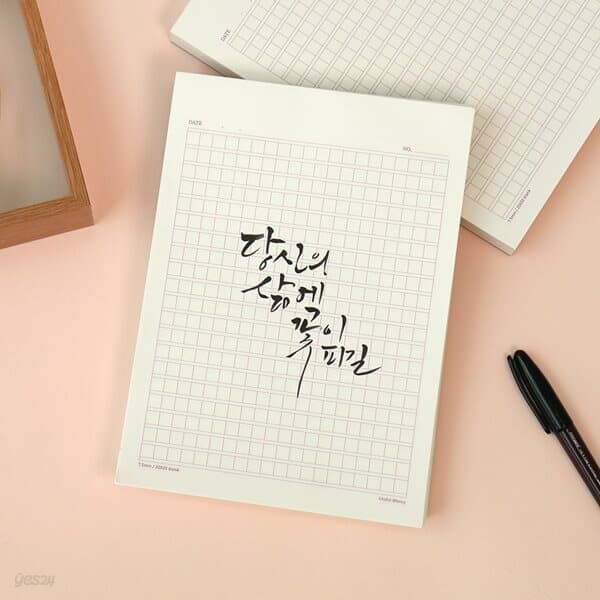 DATE
DATE
NO.
당신의
삶에
꽃이
피길
yes24